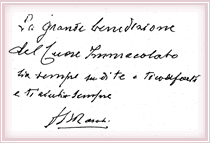 La grande benedizione
del Cuore Immacolato
sia sempre su di te e ti conforti
e ti aiuti sempre